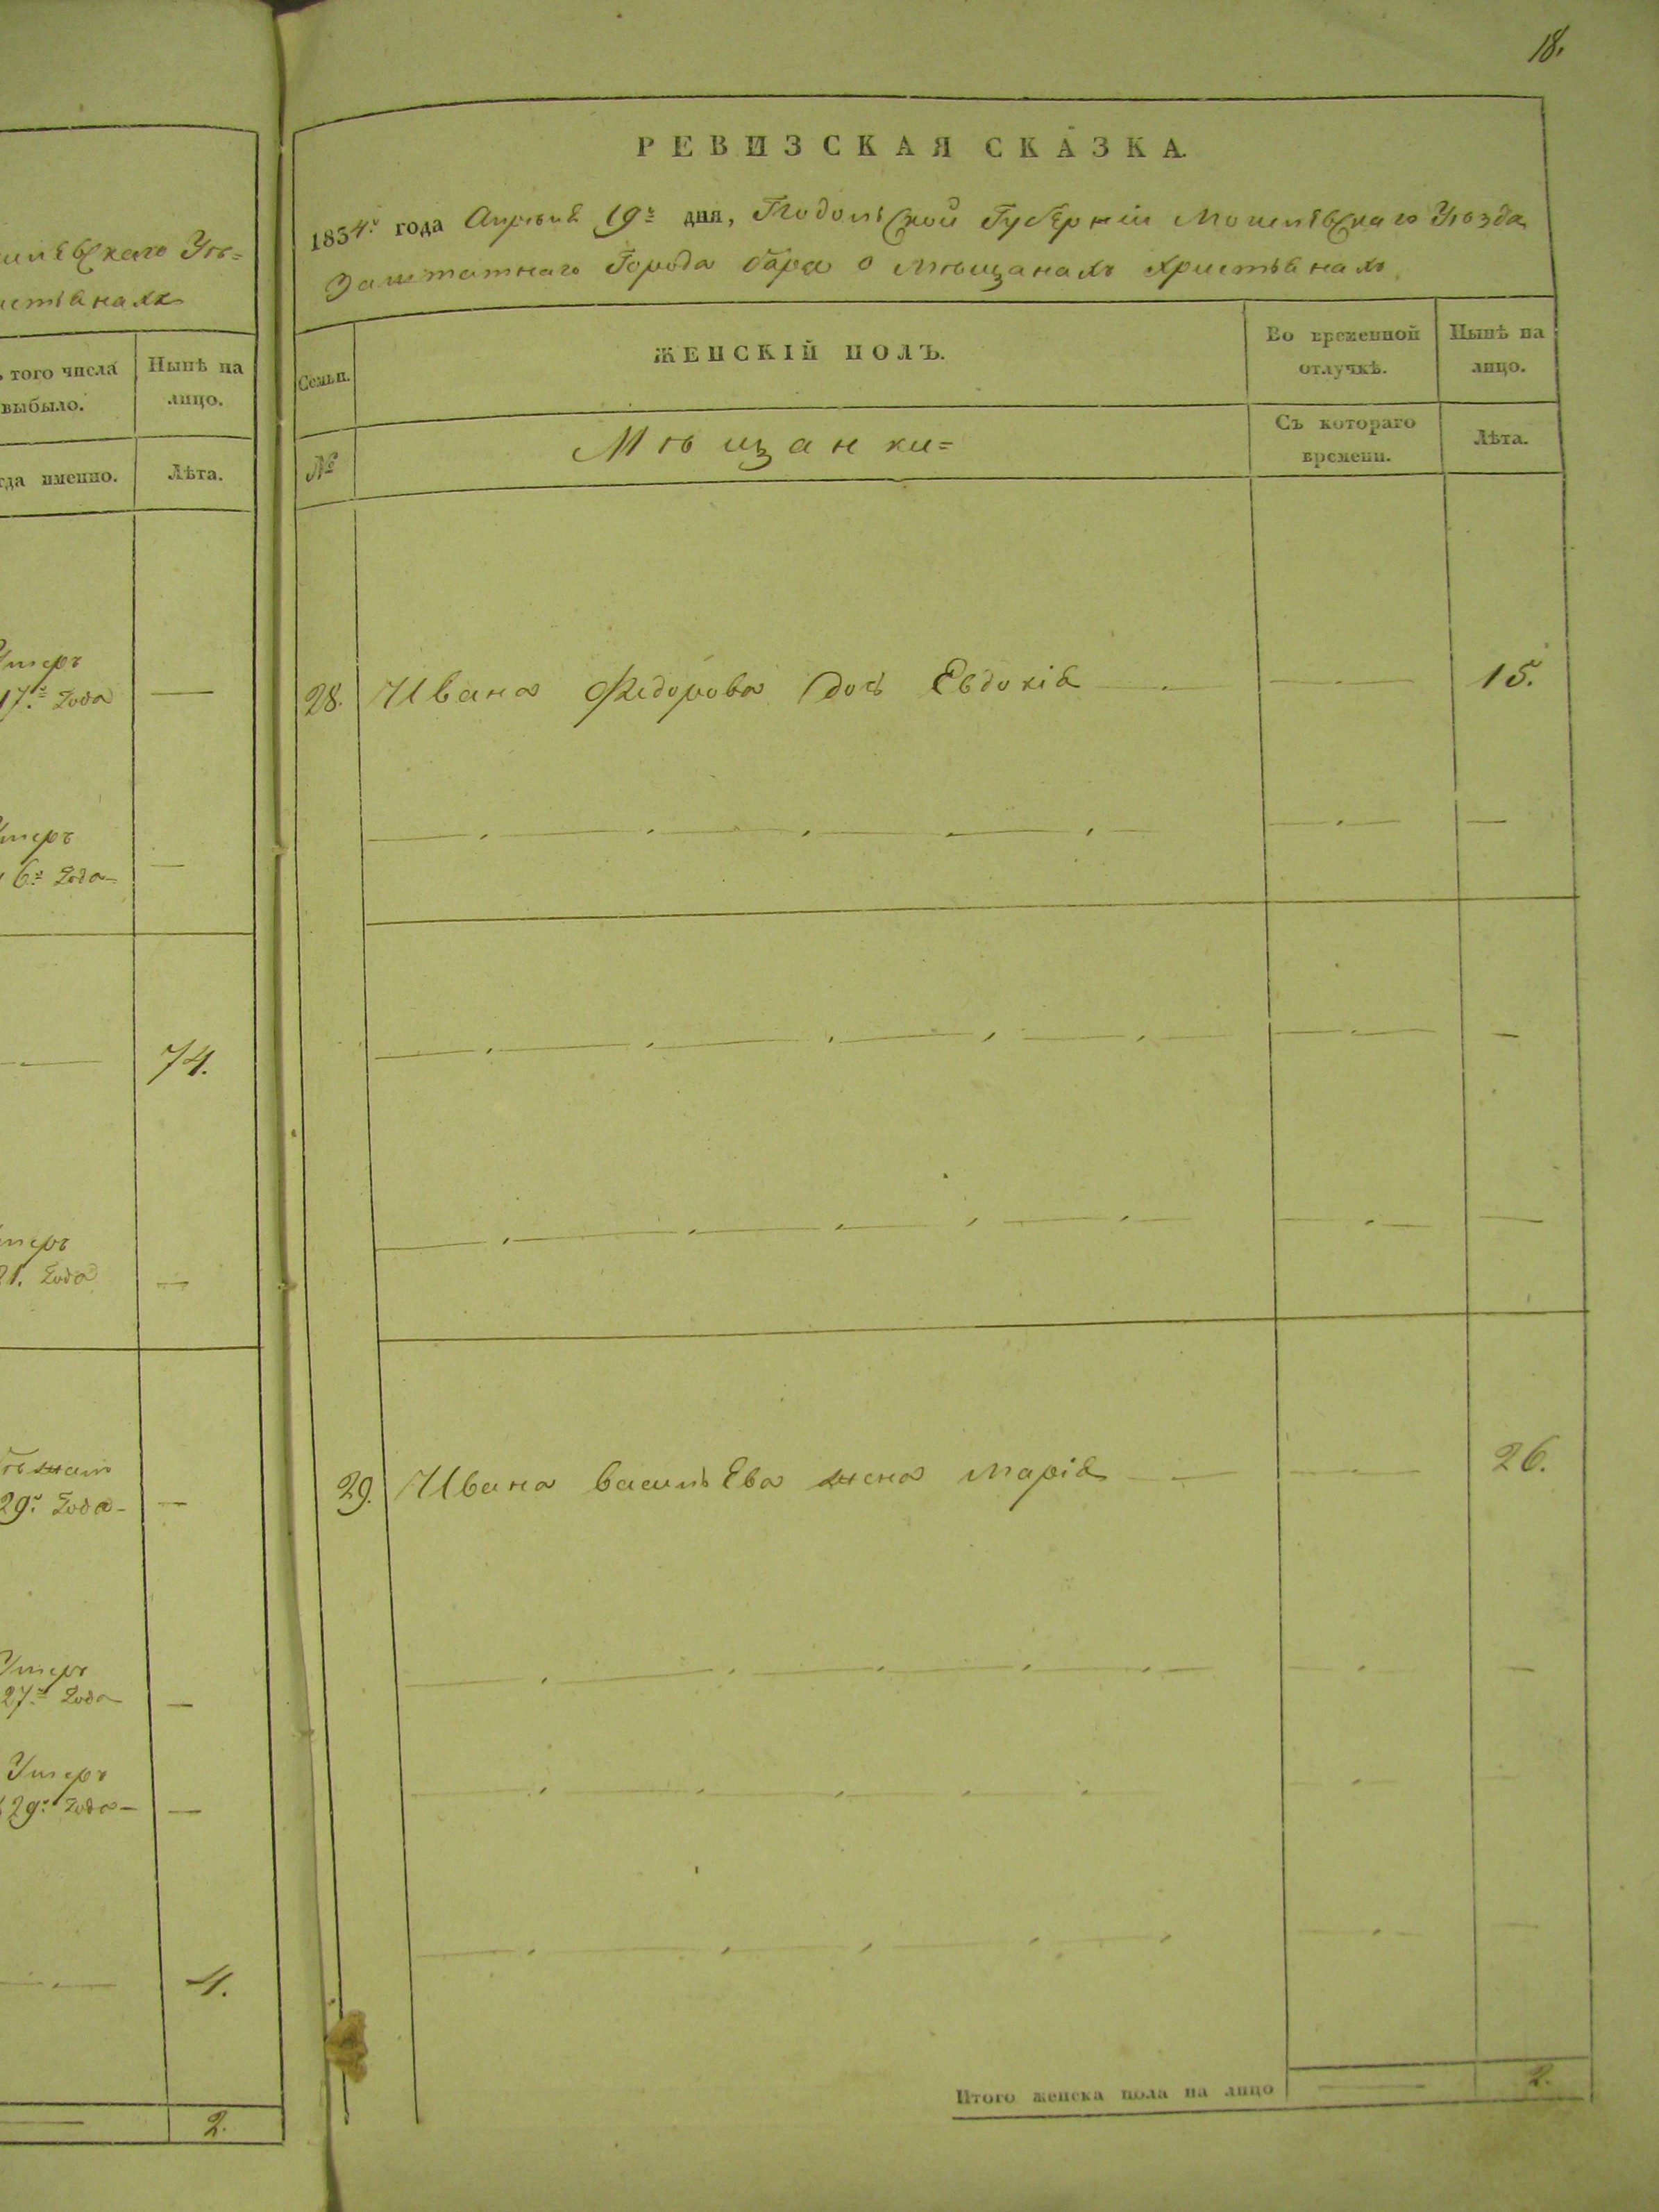 18.
РЕВИЗСКАЯ СКАЗКА.
1834.го года Апрѣля 19го дня, Подольской Губерніи Могилевскаго Уѣзда
Заштатнаго Города Бара о мѣщанахъ христіанахъ.
Семьи.
ЖЕНСКІЙ ПОЛЪ.
Во временной отлучкѣ.
Нынѣ на лицо.
№
Мѣщанки=
Съ котораго времени.
Лѣта.
28. Ивана Федорова дочь Евдокія 15.
29. Ивана Васильева жена Марія 26.
Итого женска пола на лицо 2.
того числа выбыло.
Нынѣ на лицо.
именно.
Лѣта.
христіанахъ
Умеръ
17.го года —
Умеръ
6.го года —
74.
Умеръ
21. года —
29.го года —
Умеръ
27.го года —
Умеръ
29.го года —
4.
2.